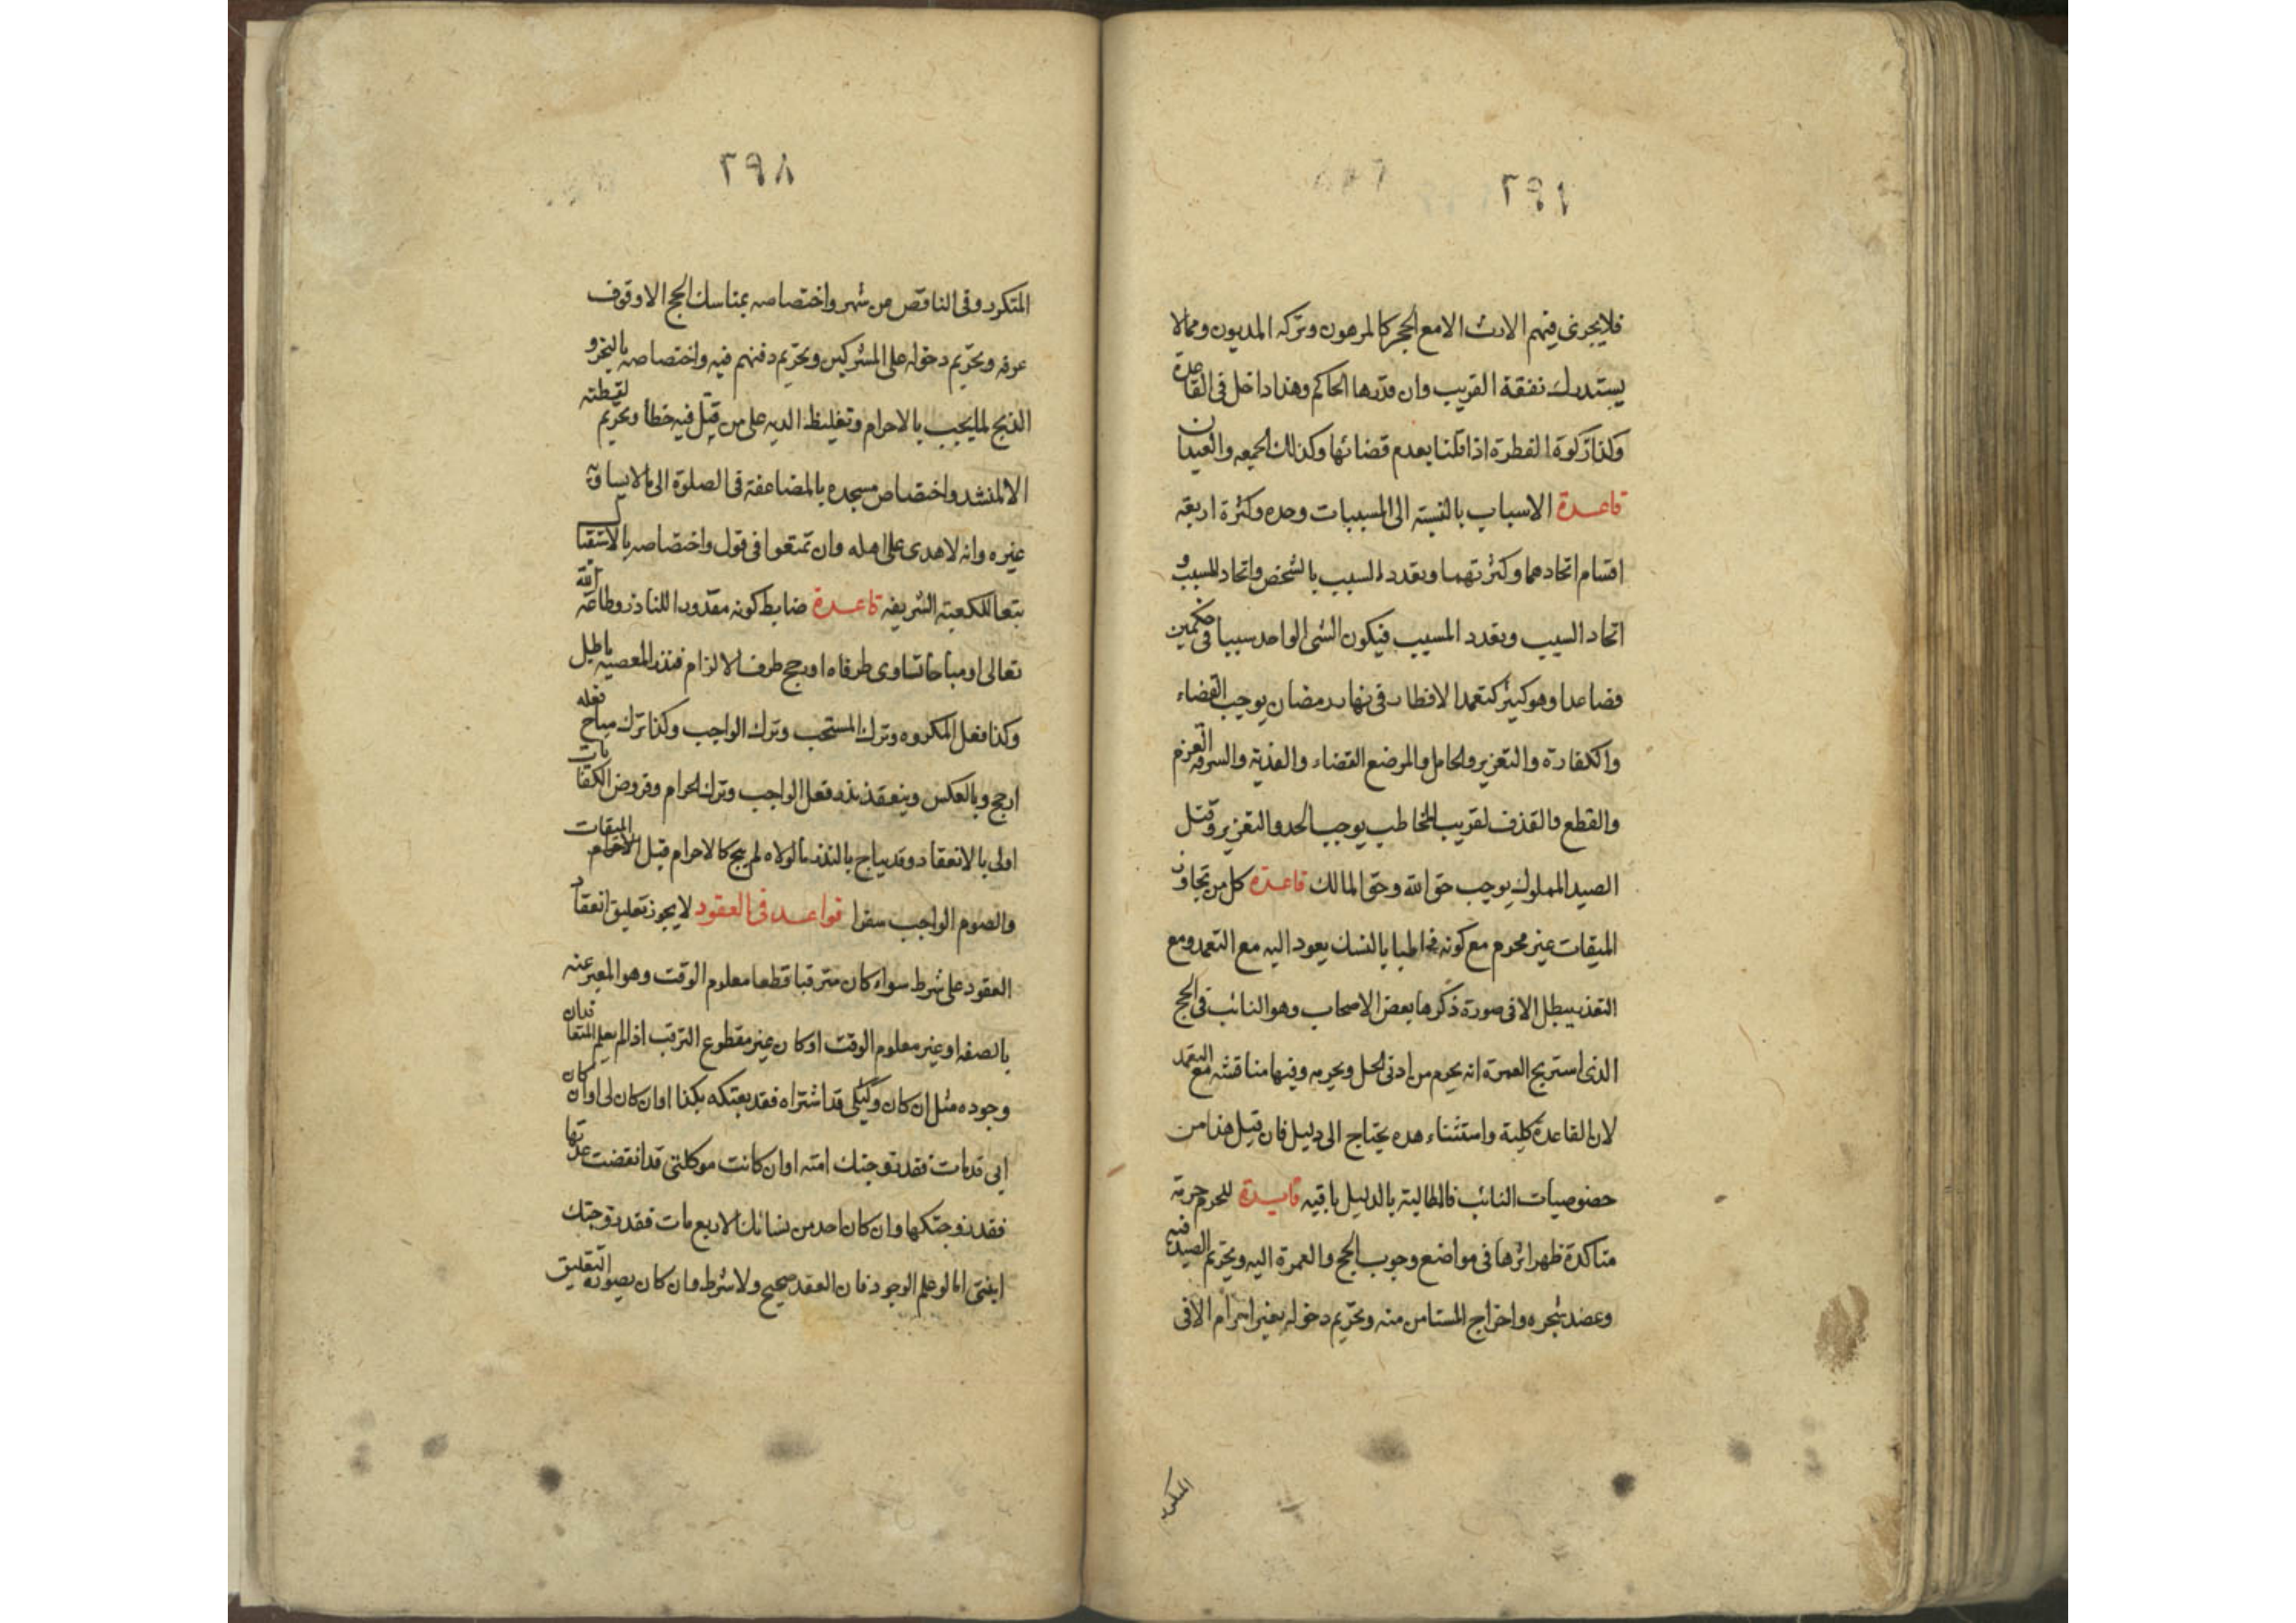 ٢٩١
فلا يجزى فيهم الارث الا مع الحجر كالمرهون وتركه المديون ومما لا
يستدرك نفقة القريب وان قدرها الحاكم وهذا داخل فى القاعدة
وكذا زكوة الفطرة اذا قلنا بعدم قضائها وكذلك الجمعه والعيدان
قاعدة الاسباب بالنسبة الى المسببات وحده وكثرة اربعة
اقسام اتحادهما وكثرتهما وتعدد السبب بالشخص واتحاد المسبب و
اتحاد السبب وتعدد المسبب فيكون الشى الواحد سببا فى حكمين
فصاعدا وهو كثير كتعمد الافطار فى نهار رمضان يوجب القضاء
والكفارة والتعزير والحامل والمرضع القضاء والفدية والسرقه الغرم
والقطع والقذف لقريب المخاطب يوجب الحد والتعزير وقتل
الصيد المملوك يوجب حق الله وحق المالك قاعدة كل من تجاوز
الميقات غير محرم مع كونه مخاطبا بالنسك يعود اليه مع التعمد ومع
التعذر يبطل الا فى صورة ذكرها بعض الاصحاب وهو النائب فى الحج
الذى استربح العمرة انه يحرم من ادنى الحل ويجزيه وفيها مناقشه مع التعمد
لان القاعدة كلية واستثناء هذه يحتاج الى دليل فان قيل هذا من
خصوصيات النائب فالمطالبة بالدليل باقيه فايدة للحرم حرمة
متاكدة ظهر اثرها فى مواضع وجوب الحج والعمرة اليه وتحريم الصيد فيه
وعضد شجره واخراج المستامن منه وتحريم دخوله بغير احرام الا فى
المتكرر
٢٩٨
المتكرر وفى الناقص من شهر واختصاصه بمناسك الحج الا وقوف
عرفه وتحريم دخوله على المشركين وتحريم دفنهم فيه واختصاصه بالنحر و
الذبح لما يجب بالاحرام وتغليظ الديه على من قتل فيه خطأ وتحريم لقطته
الا لمنشد واختصاص مسجده بالمضاعفة فى الصلوة الى ما لا يساويه
غيره وانه لا هدى على اهله وان تمتعوا فى قول واختصاصه بالاستقبال
تبعا للكعبة الشريفه قاعدة ضابط كونه مقدورا للناذر وطاعة الله
تعالى او مباحا تساوى طرفاه او رجح طرف الالزام فنذر المعصيه باطل
وكذا فعل المكروه وترك المستحب وترك الواجب وكذا ترك مباح فعله
ارجح وبالعكس وينعقد نذر فعل الواجب وترك الحرام وفروض الكفايات
اولى بالانعقاد وقد يباح بالنذر ما لولاه لم يبح كالاحرام قبل الميقات
والصوم الواجب سفرا قواعد فى العقود لا يجوز تعليق انعقاد
العقود على شرط سواء كان مترقبا قطعا معلوم الوقت وهو المعبر عنه
بالصفه او غير معلوم الوقت او كان غير مقطوع الترقب اذا لم يعلم المتعاقدان
وجوده مثل ان كان وكيلى قد اشتراه فقد بعتكه بكذا او ان كان لى او ان كان
ابى قد مات فقد زوجتك امته او ان كانت موكلتى قد انقضت عدتها
فقد زوجتكها وان كان احد من نسائك الاربع مات فقد زوجتك
ابنتى اما لو علم الوجود فان العقد صحيح ولا شرط وان كان بصورة التعليق